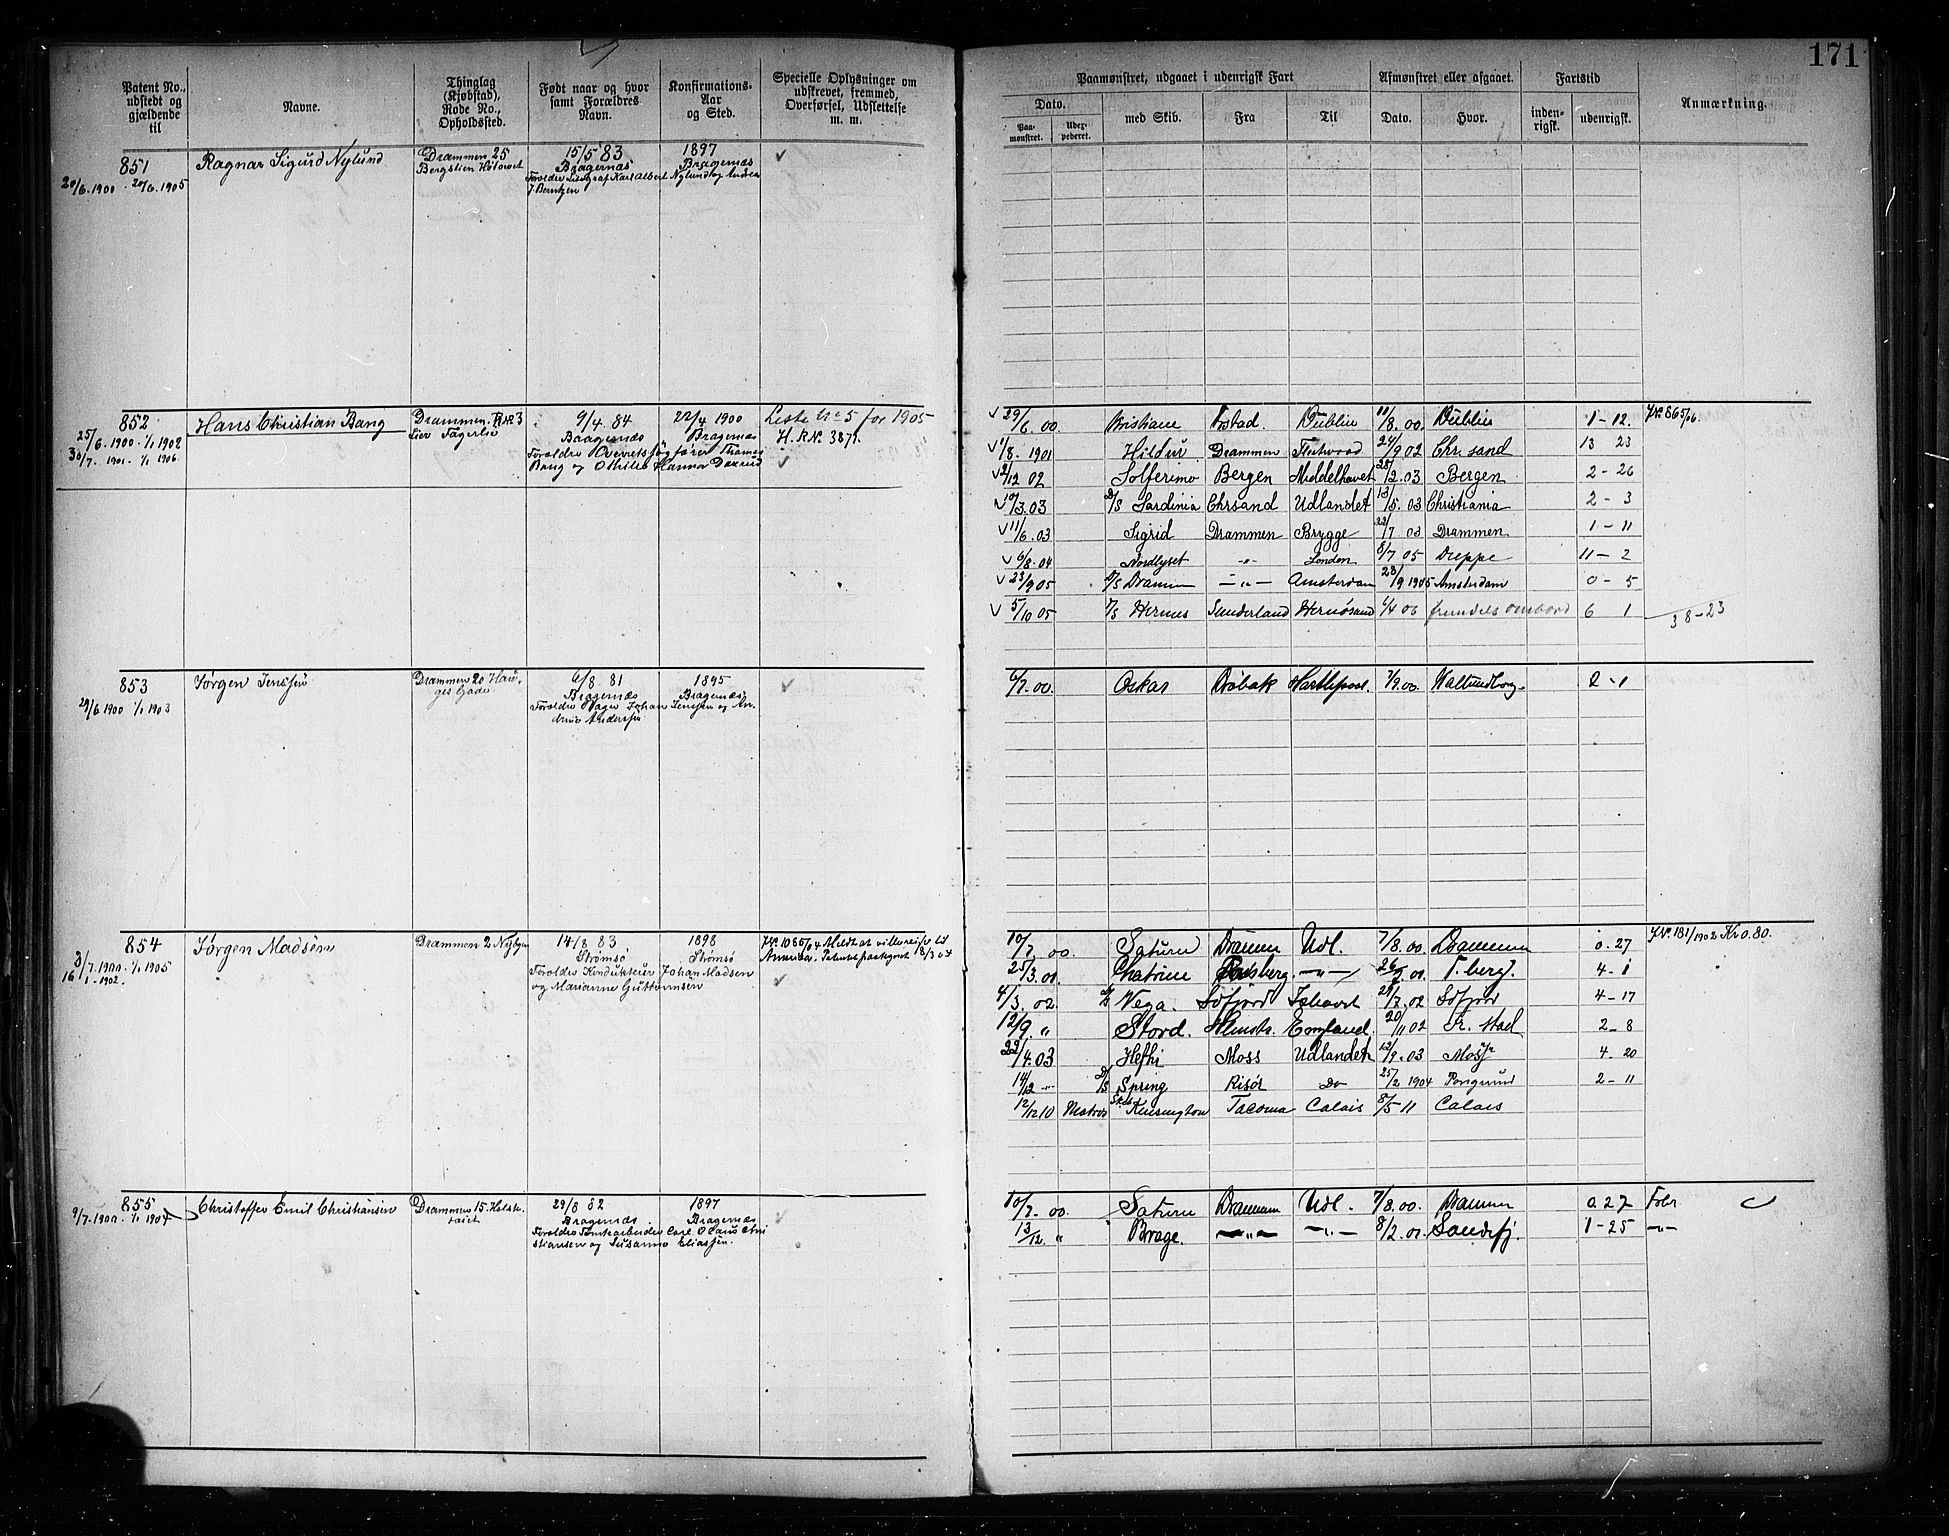 171
Patent No., udstedt og gjældende til
Navne.
Thinglag (Kjøbstad), Rode No., Opholdssted.
Født naar og hvor samt Forældres Navn.
Konfirmations-Aar og Sted.
Specielle Oplysninger om udskrevet, fremmed, Overførsel, Udslettelse m. m.
Paamønstret, udgaaet i udenrigsk Fart
Dato.
Paa-mønstret.
med Skib.
Fra
Til
Afmønstret eller afgaaet.
Dato.
Hvor.
Fartstid
inden-rigsk.
udenrigsk.
Anmærkning.
851
20/6.1900 . 20/6.1905
Ragnar Sigurd Nylund
Drammen 25
Bergstien
15/5 83
Bragernæs
1897
Bragernæs
Forældre Karl Albert Nylund og
J. Berntzen
852
25/6.1900 . 1/1 1902
30/7. 1901. 1/1 1906.
Hans Christian Bang
Drammen. 3
Lier Fagerlie
9/4. 84
22/4 1900
Bragernæs
Forældre fører Thomas
Bang og Othilie Hanna
Liste No 5 for 1905
H.R.No. 387.
29/6 00. Fostad. Dublin /8. 00. Dublin 1-12. J.No. 865/06.
1/8. 1901 Hildur Drammen Fleetwood 24/9 02 Chr. sand 13 23
2/12 02 Solferino Bergen Middelhavet 28/2.03 Bergen 2-26
10/3.03 D/S Sardinia Chrsand Udlandet 13/5. 03 Christiania 2-3
11/6.03 Sigrid Drammen Brygge 22/7 03 Drammen 1-11
6/8.04 Nordlyset -"- London 8/7 05 Dieppe 11-2
23/9 05 D/S Dramm -"- Amsterdam 28/9 1905 Amsterdam 0-5
5/10 05 D/S Hermes Sunderland Hernøsand 6/4 06 fremdeles ombord 6 1
38-23
853
29/6 1900 1/1 1903
Jørgen Jenssen
Drammen 20 Hau-
ges Gade
6/8. 81
Bragernæs
1895
Bragernæs
Forældre Johan Jenssen og An-
Anderssen
6/7. 00. Oskar Drøbak Hartlepool. 7/9.00. 2-1
854
3/7.1900. 1/1 1905
16/1.1902.
Jørgen Madsen
Drammen 2
14/8 83
Strømsø
1898
Strømsø
Forældre Konduktør Johan Madsen
og Marianne Guttormsen
J.No. 1065/04 Meldt at ville reise til
Amerika. 18/3 04
10/7. 00. Saturn Dramm Udl. 7/8.00. Drammen 0-27 J.No. 181/1902 Kr 0.80.
25/3.01. Cathrine Tønsberg -"- 26/ .01. T.berg. 4-1
4/3. 02. Vega. Ishavet 21/7.02 4-17
12/9. " Stord. England. 20/11 02 Fr. stad 2-8
22/4.03 Hefhi Moss Udlandet 12/9.03 Moss 4-20
14/12 -"- D/S Spring Risør Do 25/2 1904 2-11
12/12 10 Matros Kensington Tacoma Calais 8/5 11 Calais
855
9/7.1900. 1/1 1904
Christoffer Emil Christiansen
Drammen 15.
29/8 82
Bragernæs
1897
Bragernæs
Forældre Tomtearbeider Carl Olaus Chri
stiansen og Susanna Eliassen.
10/7. 00. Saturn Drammen Udl. 7/8.00. Drammen 0.27
13/12. " Brage. -"- -"- 8/2.01. Sandefj. 1-25 -"-